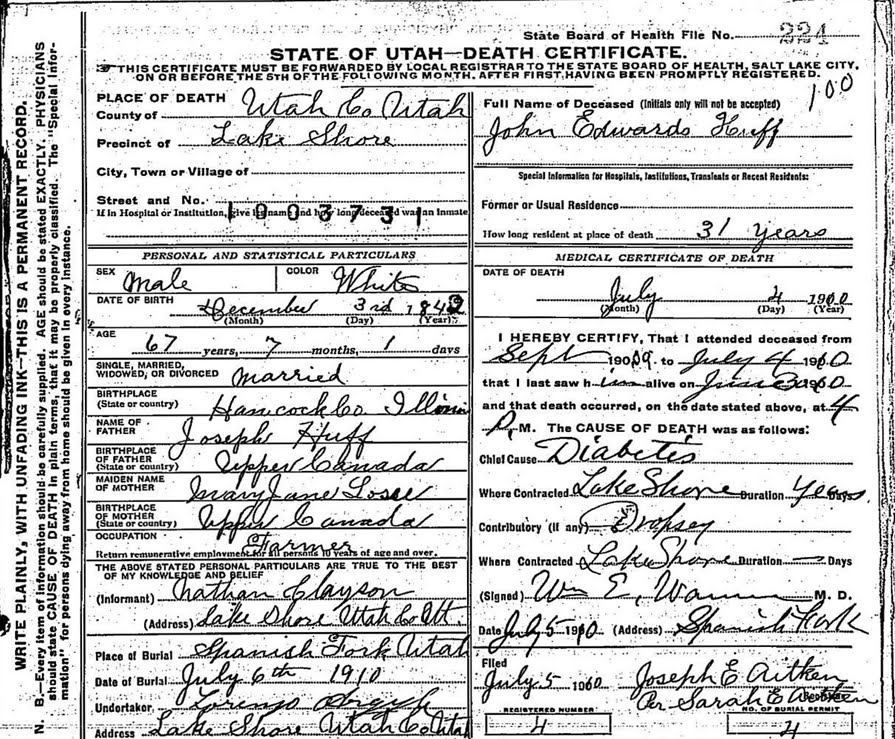 State Board of Health File No. 224
STATE OF UTAH—DEATH CERTIFICATE.
THIS CERTIFICATE MUST BE FORWARDED BY LOCAL REGISTRAR TO THE STATE BOARD OF HEALTH, SALT LAKE CITY,
ON OR BEFORE THE 5TH OF THE FOLLOWING MONTH, AFTER FIRST HAVING BEEN PROMPTLY REGISTERED.
WRITE PLAINLY, WITH UNFADING INK—THIS IS A PERMANENT RECORD.
N. B.—Every item of information should be carefully supplied. AGE should be stated EXACTLY. PHYSICIANS
should state CAUSE OF DEATH in plain terms, that it may be properly classified. The "Special Infor-
mation" for persons dying away from home should be given in every instance.
PLACE OF DEATH
County of Utah Co Utah
Precinct of Lake Shore
City, Town or Village of
Street and No.
If in Hospital or Institution, give its name and how long deceased was an inmate
100373 1
PERSONAL AND STATISTICAL PARTICULARS
SEX Male COLOR White
DATE OF BIRTH December 3rd 1842
(Month) (Day) (Year)
AGE
67 years, 7 months, 1 days
SINGLE, MARRIED,
WIDOWED, OR DIVORCED married
BIRTHPLACE
(State or country) Hancock Co. Illinois
NAME OF
FATHER Joseph Huff
BIRTHPLACE
OF FATHER
(State or country) Upper Canada
MAIDEN NAME
OF MOTHER Mary Jane Losee
BIRTHPLACE
OF MOTHER
(State or country) Upper Canada
OCCUPATION Farmer
Return remunerative employment for all persons 10 years of age and over.
THE ABOVE STATED PERSONAL PARTICULARS ARE TRUE TO THE BEST
OF MY KNOWLEDGE AND BELIEF
(Informant) Nathan Clayson
(Address) Lake Shore Utah Co Ut.
Place of Burial Spanish Fork Utah
Date of Burial July 6th 1910
Undertaker Lorenzo
Address Lake Shore Utah Co Utah
Full Name of Deceased (Initials only will not be accepted) 100
John Edwards Huff
Special Information for Hospitals, Institutions, Transients or Recent Residents:
Former or Usual Residence
How long resident at place of death 31 years
MEDICAL CERTIFICATE OF DEATH
DATE OF DEATH
July 4 1910
(Month) (Day) (Year)
I HEREBY CERTIFY, That I attended deceased from
Sept 1909 to July 4 1910
that I last saw him alive on June 30 1910
and that death occurred, on the date stated above, at 4
P. M. The CAUSE OF DEATH was as follows:
Chief Cause Diabetis
Where Contracted Lake Shore Duration Years Days.
Contributory (if any) Dropsey
Where Contracted Lake Shore Duration — Days
(Signed) Wm E. Warner M. D.
Date July 5 1910 (Address) Spanish Fork
Filed
July 5 1910 Joseph E Aitken
Per Sarah E Aitken
REGISTERED NUMBER NO. OF BURIAL PERMIT
4 4